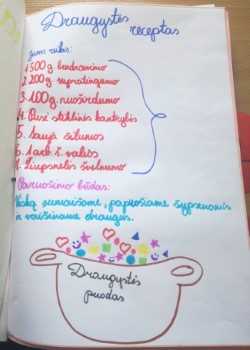 Draugystės receptas
Jums reikės:
1. 500 g. bendravimo
2. 200 g. supratingumo
3. 100 g. nuoširdumo
4. Pusė stiklinės kantrybės
5. Sauja šilumos
6. 1 arb. š. valios
7. Žiupsnelis švelnumo
Paruošimo būdas:
Viską sumaišome, papuošiame šypsenomis
ir vaišiname draugus.
Draugystės
puodas